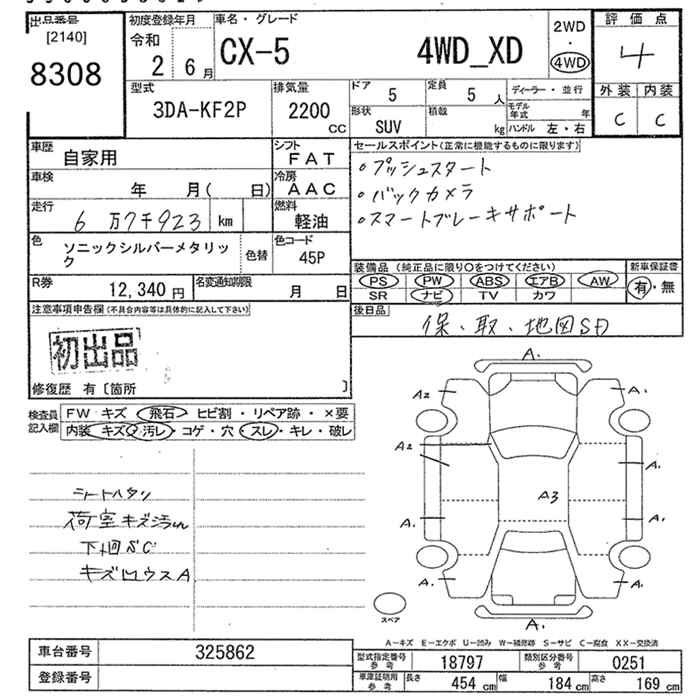 出品番号
[2140]
8308
初度登録年月
令和
2 6月
車名・グレード
CX-5 4WD_XD
2WD
・
4WD
評価点
4
外装 内装
C C
型式
3DA-KF2P
排気量
2200
CC
ドア
5
定員
5 人
形状
SUV
積載
kg
ディーラー・並行
モデル年式 年
ハンドル 左・右
車歴
自家用
シフト
FAT
車検
年 月( 日)
冷房
AAC
走行
6 万7千923 km
燃料
軽油
色
ソニックシルバーメタリック
色替
色コード
45P
R券
12,340 円
名変通知期限
月 日
セールスポイント(正常に機能するものに限ります)
。プッシュスタート
。バックカメラ
。スマートブレーキサポート
装備品 (純正品に限り○をつけてください)
PS PW ABS エアB AW
SR ナビ TV カワ
新車保証書
有・無
後日品
保・取・地図SD
注意事項申告欄(不具合内容等は具体的に記入して下さい)
初出品
修復歴 有〔箇所 〕
検査員記入欄
FW キズ・飛石・ヒビ割・リペア跡・×要
内装 キズ・汚レ・コゲ・穴・スレ・キレ・破レ
シートハタリ
荷室キズ汚れ
下回SC
キズ凹ウスA
A.
A2 A.
A2 A.
A3
A. A.
A. A.
A.
スペア
A-キズ E-エクボ U-凹み W-補修跡 S-サビ C-腐食 XX-交換済
車台番号
325862
登録番号
型式指定番号 参考
18797
類別区分番号 参考
0251
車庫証明用 参考
長さ 454 cm
幅 184 cm
高さ 169 cm